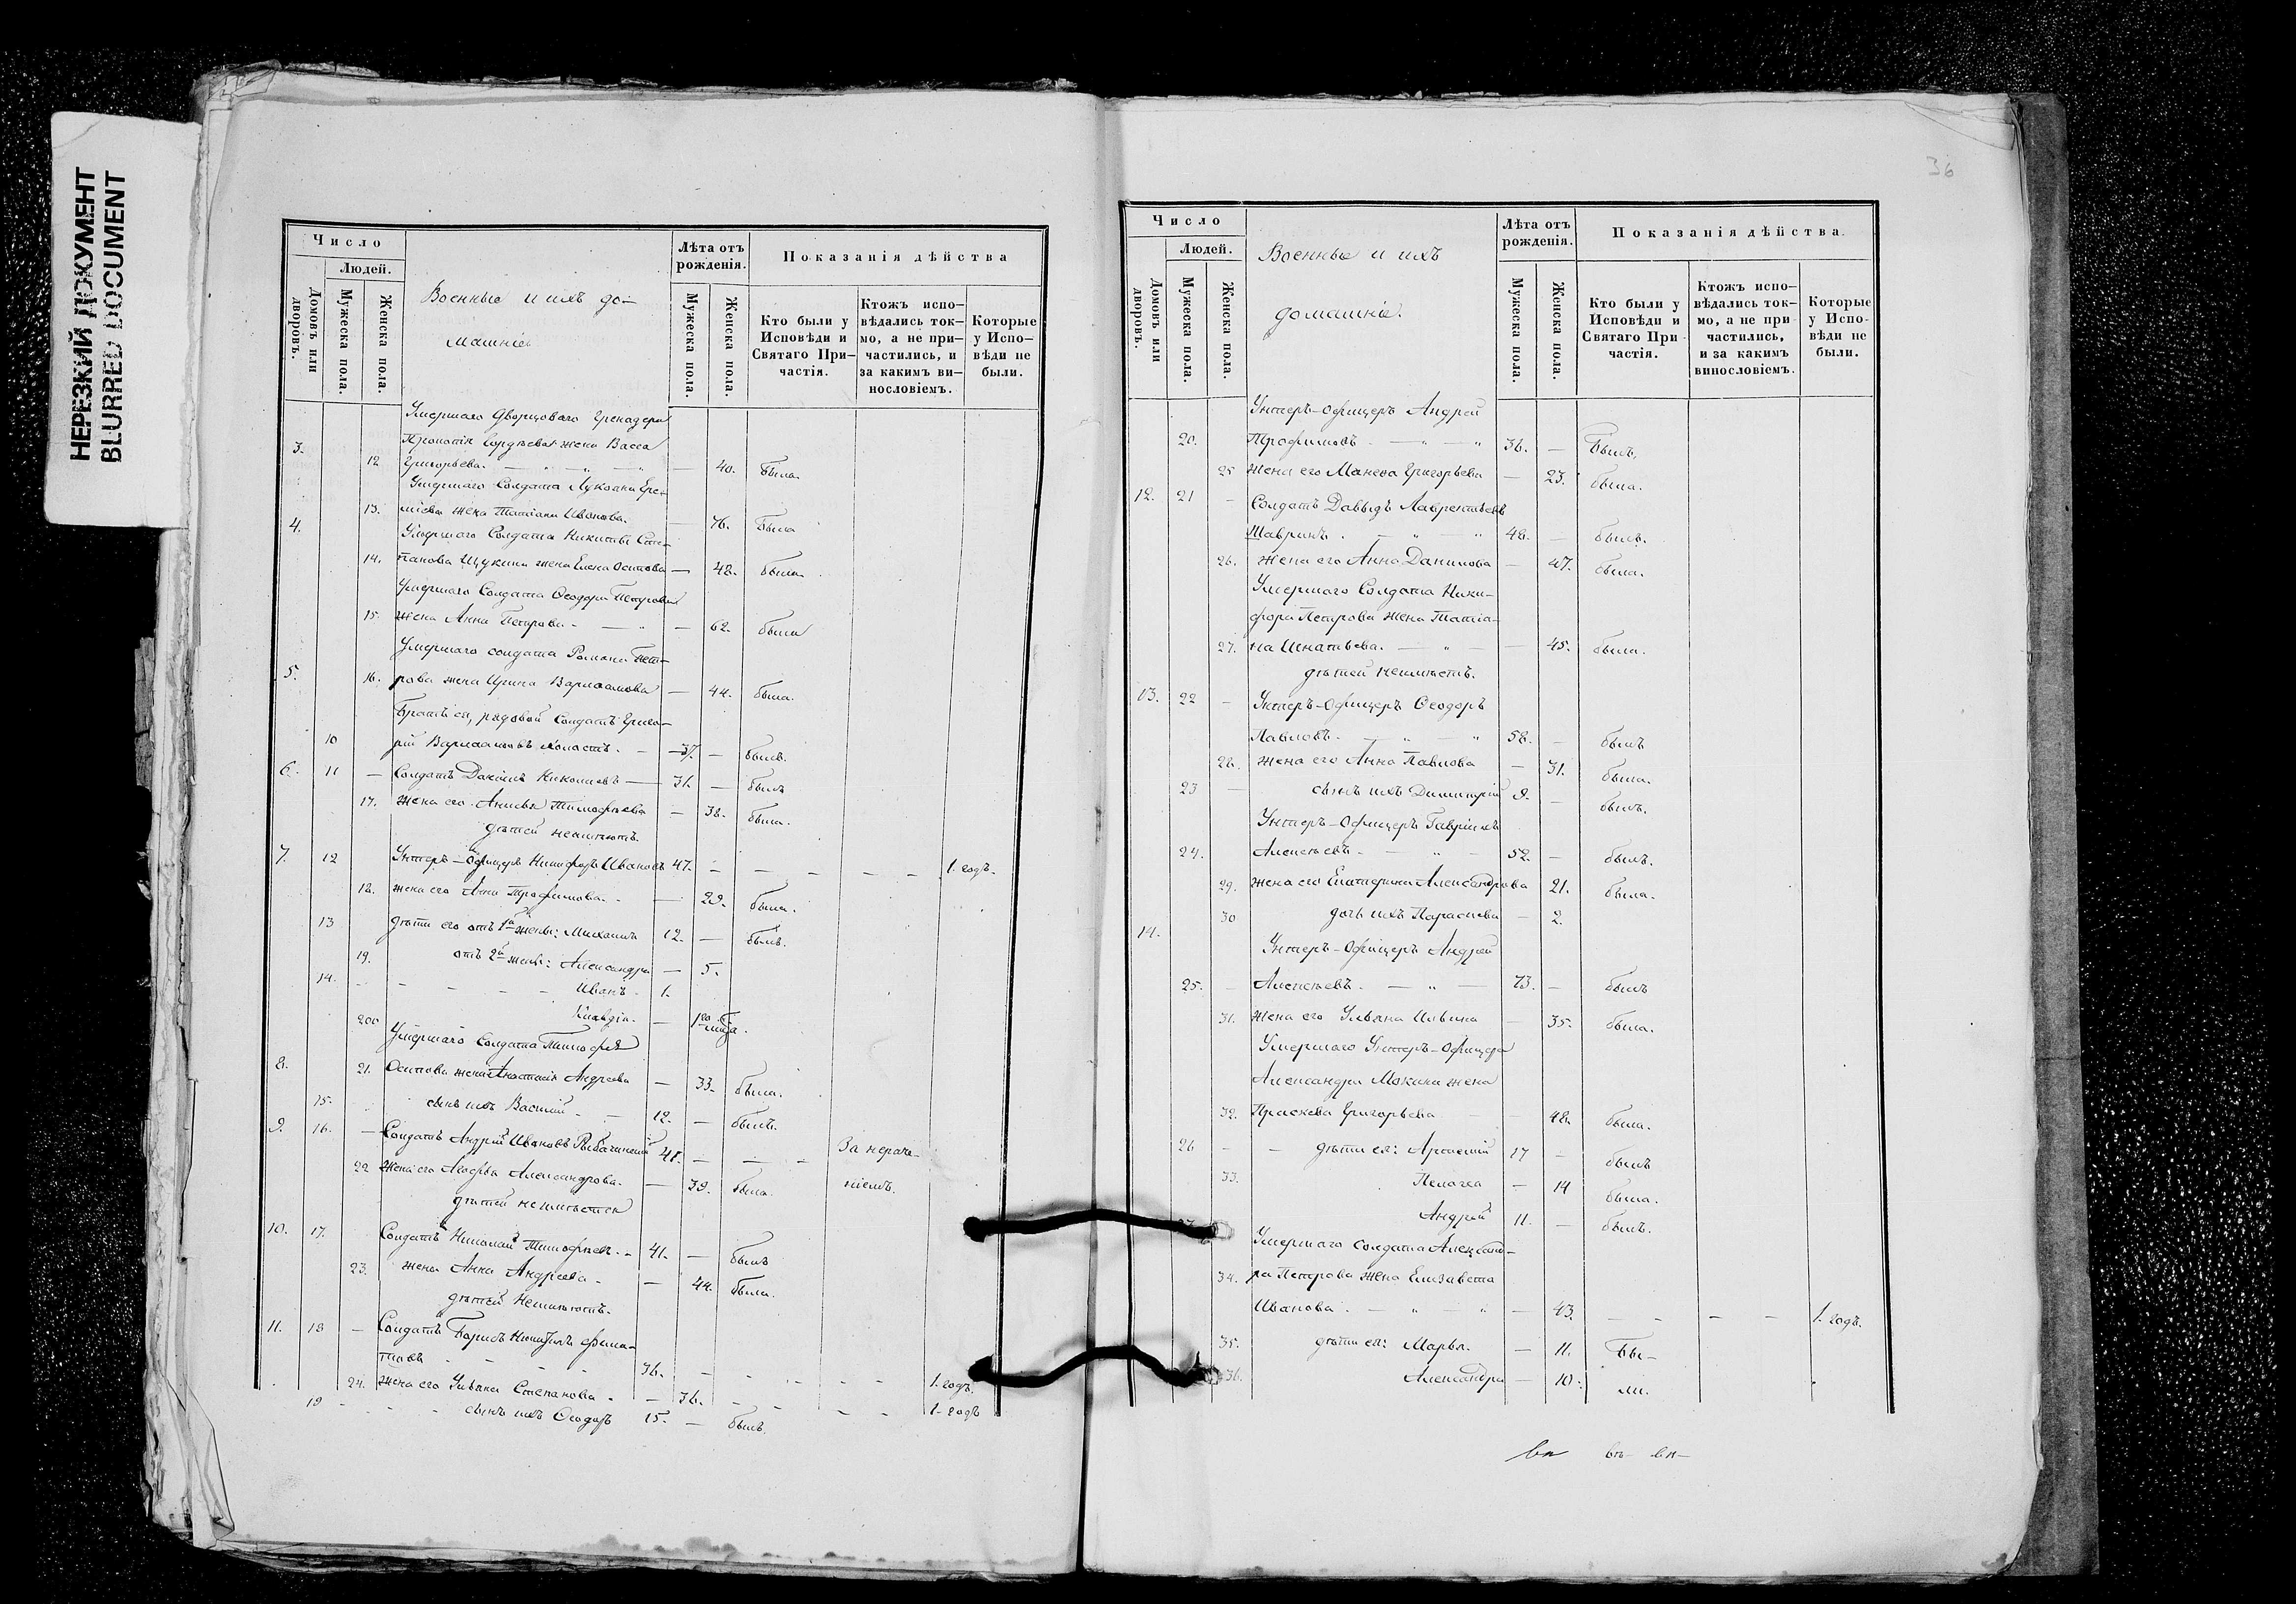 НЕРЕЗКИЙ ДОКУМЕНТ
BLURRED DOCUMENT
Число
Людей.
Домовъ или дворовъ.
Мужеска пола.
Женска пола.
Военные и ихъ до-
машніе
Лѣта отъ рожденія.
Мужеска пола.
Женска пола.
Показанія дѣйства
Кто были у Исповѣди и Святаго При-частія.
Ктожъ испо-вѣдались ток-мо, а не при-частились, и за какимъ ви-нословіемъ.
Которые у Испо-вѣди не были.
Умершаго Дворцоваго Гренадера
3. жена Васса
12 Григорьева. — 40. была.
Умершаго Солдата
13. жена Татіана Иванова. — 76. Была
4. Умершаго Солдата Никиты Сте-
14. панова Щукина жена Елена Осипова — 48. была.
Умершаго Солдата Ѳеодора Петрова
15. жена Анна Петрова - — 62. была
Умершаго солдата Романа Пет-
5. 16. рова жена Ирина Варлаамова — 44. была.
Братъ ея, рядовой Солдатъ Григо-
10 рій Варлаамовъ холостъ. - 37. — былъ.
6. 11 — Солдатъ Даніилъ Николаевъ — 31. — былъ
17. жена его Тимофѣева — 38. была.
дѣтей неимѣютъ.
7. 12 Унтеръ-Офицеръ Никифоръ Ивановъ 47. - - - - - 1. годъ.
18. жена его Анна Трофимова. - — 29. была.
13 дѣти его отъ 1й жены: Михаилъ 12. — былъ.
19. отъ 2й жены: Александра — 5.
14. - - - - Иванъ. 1.
200 Клавдія. —
Умершаго Солдата Тимофея
8. 21. Осипова жена Анастасія Андреева — 33. была.
15. сынъ ихъ Василій - — 12. — былъ.
9. 16. — Солдатъ Андрей Ивановъ 41. - - - За нераде-
22 жена его Агафья Александрова. — 39. была. ніемъ.
дѣтей неимѣется
10. 17. Солдатъ Николай Тимофеев. - 41. — былъ
23. жена Анна Андреева - — 44. была.
дѣтей Неимѣютъ.
11. 18 — Солдатъ Борисъ
36. - - - - 1. годъ.
24. жена его Ульяна Степанова - — 36. - - - - 1. годъ
19 - - - - сынъ ихъ Ѳеодоръ 15. — былъ.
36
Число
Людей.
Домовъ или дворовъ.
Мужеска пола.
Женска пола.
Военные и ихъ
домашніе.
Лѣта отъ рожденія.
Мужеска пола.
Женска пола.
Показанія дѣйства.
Кто были у Исповѣди и Святаго При-частія.
Ктожъ испо-вѣдались ток-мо, а не при частились, и за какимъ винословіемъ.
Которые у Испо-вѣди не были.
Унтеръ-Офицеръ Андрей
20. Трофимовъ - — „ — „ 36. — Былъ,
25 жена его Григорьева — 23. была.
12. 21 — Солдатъ Давыдъ Лаврентьевъ
Шавринъ. - „ - „ 48. — былъ.
26. жена его Анна Данилова — 47. была.
Умершаго Солдата Ники-
фора Петрова жена Татіа-
27. на Игнатьева. — „ — — 45. была.
дѣтей неимѣетъ.
13. 22 — Унтеръ-Офицеръ Ѳеодоръ
Павловъ. — „ — „ 58. — былъ
28. жена его Анна Павлова — 31. была.
23 — сынъ ихъ Димитрій 9. — былъ.
Унтеръ-Офицеръ Гавріилъ
24. Алексѣевъ - — „ — 52. — былъ.
29. жена его Екатерина Александрова 21. была.
30 дочь ихъ Параскева — 2.
14. Унтеръ-Офицеръ Андрей
25. — Алексѣевъ. - — „ — 73. — былъ
31. жена его Ульяна Ильина — 35. была.
Умершаго Унтеръ-Офицера
Александра Мокина жена
32. Праскева Григорьева — — 48. была.
26 — — дѣти ея: Арсеній 17 — былъ
33. Пелагея — 14 была.
Андрей 11. — былъ.
Умершаго солдата Александ-
34. ра Петрова жена Елизавета
Иванова. — „ — „ — 43. - - - - 1. годъ.
35. дѣти ея: Марья. — 11. Бы-
36. Александра — 10. ли.